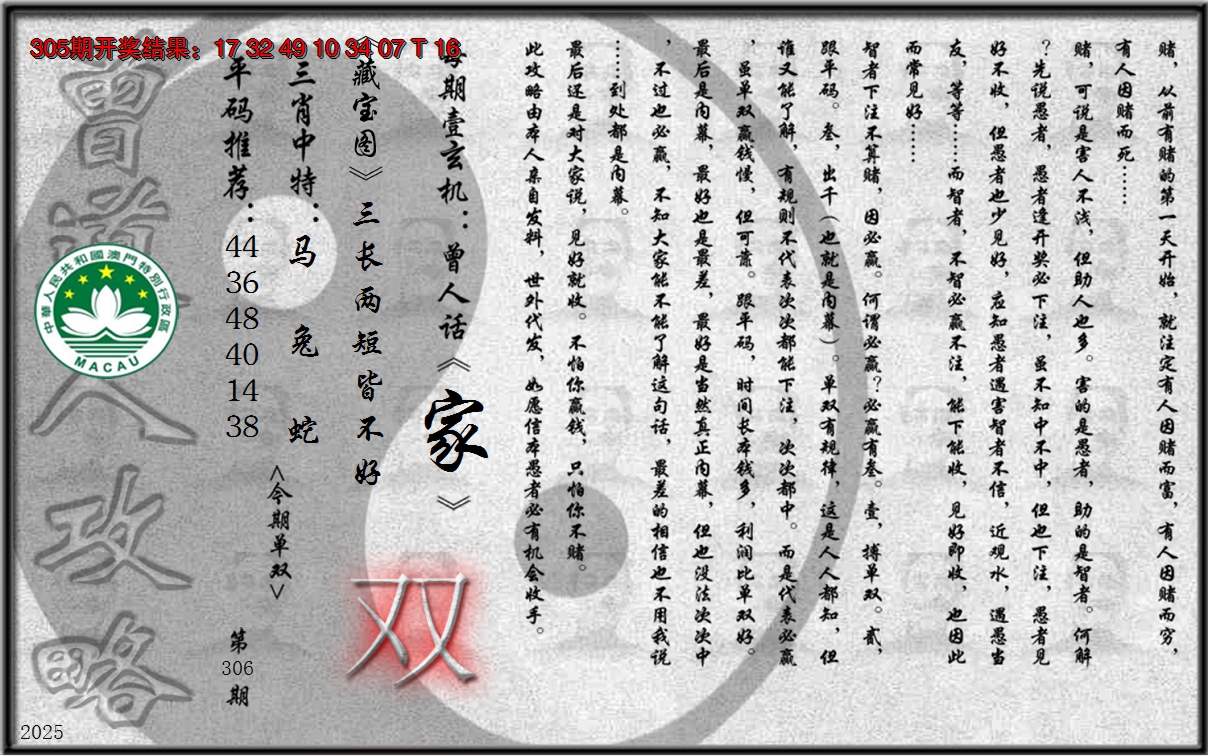 305期开奖结果：17 32 49 10 34 07 T 16
赌，从前有赌的第一天开始，就注定有人因赌而富，有人因赌而穷，
有人因赌而死……
赌，可说是害人不浅，但助人也多。害的是愚者，助的是智者。何解
？先说愚者，愚者逢开奖必下注，虽不知中不中，但也下注，愚者见
好不收，但愚者也少见好，应知愚者遇害智者不信，近观水，遇愚当
友，等等……而智者，不智必赢不注，能下能收，见好即收，也因此
而常见好……
智者下注不算赌，因必赢。何谓必赢？必赢有叁。壹，搏单双。贰，
跟平码。叁，出千（也就是内幕）。单双有规律，这是人人都知，但
谁又能了解，有规则不代表次次都能下注，次次都中。而是代表必赢
，虽单双赢钱慢，但可靠。跟平码，时间长本钱多，利润比单双好。
最后是内幕，最好也是最差，最好是当然真正内幕，但也没法次次中
，不过也必赢，不知大家能不能了解这句话，最差的相信也不用我说
……到处都是内幕。
最后还是对大家说，见好就收。不怕你赢钱，只怕你不赌。
此攻略由本人亲自发料，世外代发，如愿信本愚者必有机会收手。
每期壹玄机：曾人话《家》
《藏宝图》三长两短皆不好
双
三肖中特：马 兔 蛇
<今期单双>
平码推荐：44 36 48 40 14 38
第306期
曾道人攻略
中華人民共和國澳門特別行政區
MACAU
2025